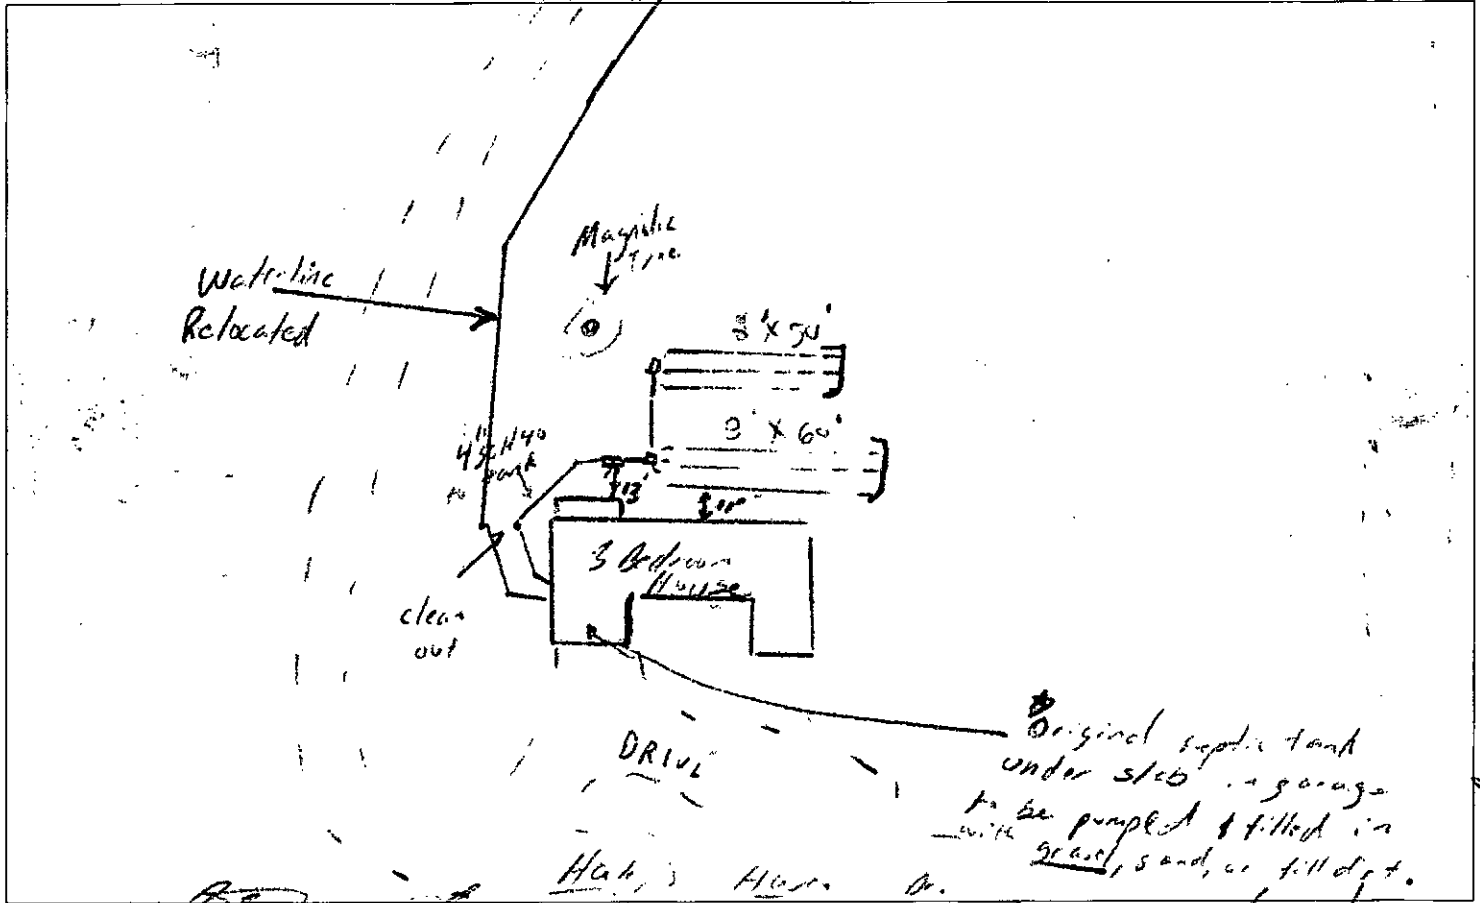 Magnolia
Tree
Waterline
Relocated
3' X 50'
3' X 60'
4" SCH 40
to tank
13'
11'
3 Bedroom
House
clean
out
DRIVE
Original septic tank
under slab in garage
to be pumped & filled in
with gravel, sand, or fill dirt.
Dr.